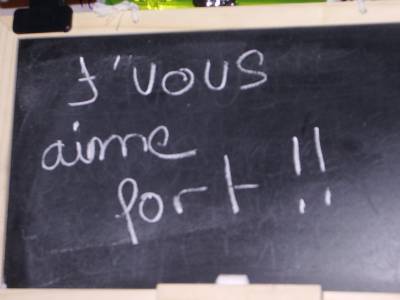 J'vous
aime
fort !!